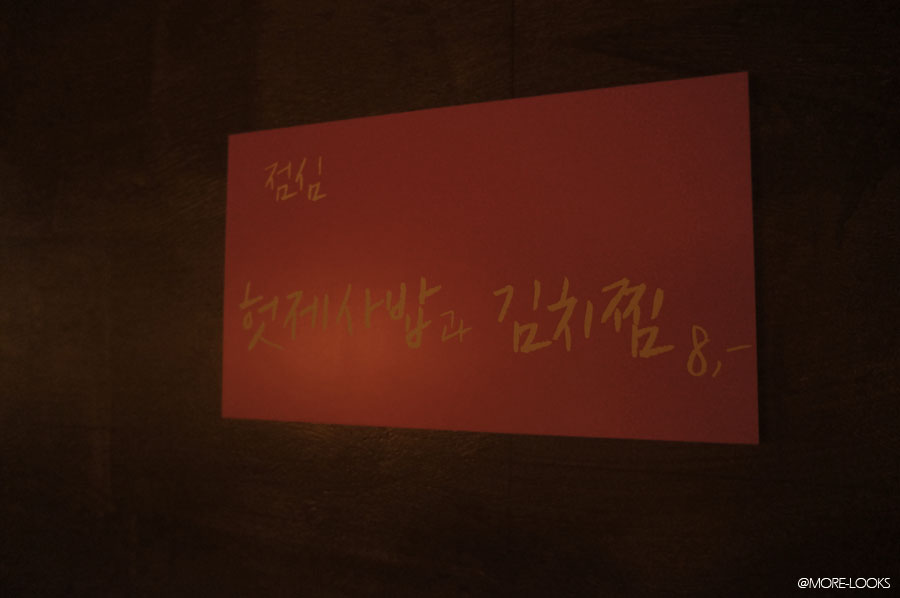 점심
헛제사밥과 김치찜 8,-
@MORE-LOOKS